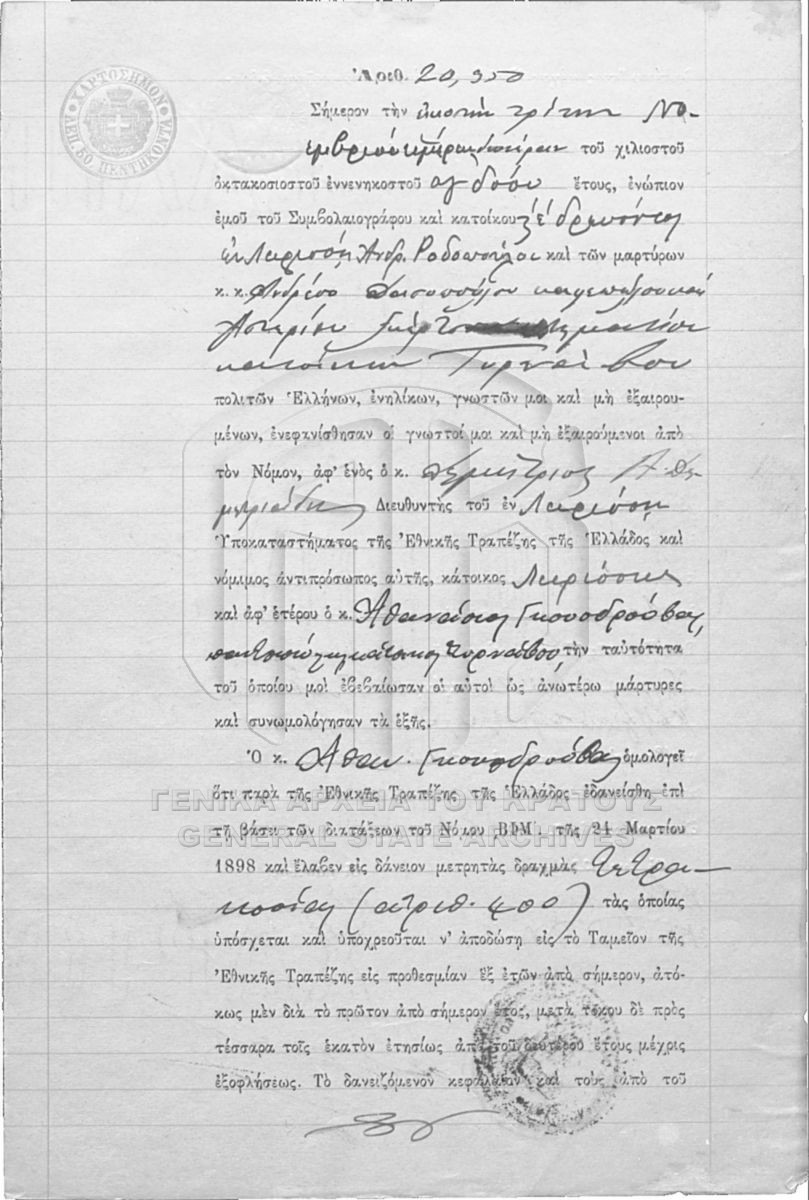 ΧΑΡΤΟΣΗΜΟΝ
ΛΕΠ. 50 ΠΕΝΤΗΚΟΝΤΑ
Ἀριθ. 20,350
Σήμερον τὴν εἰκοστὴν τρίτην Νο-
εμβρίου ἡμέραν Δευτέραν τοῦ χιλιοστοῦ
ὀκτακοσιοστοῦ ἐννενηκοστοῦ ὀγδόου ἔτους, ἐνώπιον
ἐμοῦ τοῦ Συμβολαιογράφου καὶ κατοίκου ἑδρεύοντος
ἐν Λαρίσσῃ Ἀνδρ. Ροδοπούλου καὶ τῶν μαρτύρων
κ. κ. Ἀνδρέου
Ἀστερίου κτηματίου
κατοίκων Τυρνάβου
πολιτῶν Ἑλλήνων, ἐνηλίκων, γνωστῶν μοι καὶ μὴ ἐξαιρου-
μένων, ἐνεφανίσθησαν οἱ γνωστοί μοι καὶ μὴ ἐξαιρούμενοι ἀπὸ
τὸν Νόμον, ἀφ' ἑνὸς ὁ κ. Δημήτριος Α. Δη-
μητριάδης Διευθυντὴς τοῦ ἐν Λαρίσσῃ
Ὑποκαταστήματος τῆς Ἐθνικῆς Τραπέζης τῆς Ἑλλάδος καὶ
νόμιμος ἀντιπρόσωπος αὐτῆς, κάτοικος Λαρίσσης
καὶ ἀφ' ἑτέρου ὁ κ. Ἀθανάσιος Γκουνδρούβας,
παντοπώλης κάτοικος Τυρνάβου, τὴν ταυτότητα
τοῦ ὁποίου μοὶ ἐβεβαίωσαν οἱ αὐτοὶ ὡς ἀνωτέρω μάρτυρες
καὶ συνωμολόγησαν τὰ ἑξῆς.
Ὁ κ. Ἀθαν. Γκουνδρούβας ὁμολογεῖ
ὅτι παρὰ τῆς Ἐθνικῆς Τραπέζης τῆς Ἑλλάδος ἐδανείσθη ἐπὶ
τῇ βάσει τῶν διατάξεων τοῦ Νόμου ΒΦΜ΄. τῆς 21 Μαρτίου
1898 καὶ ἔλαβεν εἰς δάνειον μετρητὰς δραχμὰς τετρα-
κοσίας (ἀριθ. 400) τὰς ὁποίας
ὑπόσχεται καὶ ὑποχρεοῦται ν' ἀποδώσῃ εἰς τὸ Ταμεῖον τῆς
Ἐθνικῆς Τραπέζης εἰς προθεσμίαν ἓξ ἐτῶν ἀπὸ σήμερον, ἀτό-
κως μὲν διὰ τὸ πρῶτον ἀπὸ σήμερον ἔτος, μετὰ τόκου δὲ πρὸς
τέσσαρα τοῖς ἑκατὸν ἐτησίως ἀπὸ τοῦ δευτέρου ἔτους μέχρις
ἐξοφλήσεως. Τὸ δανειζόμενον κεφάλαιον καὶ τοὺς ἀπὸ τοῦ
ΓΕΝΙΚΑ ΑΡΧΕΙΑ ΤΟΥ ΚΡΑΤΟΥΣ
GENERAL STATE ARCHIVES